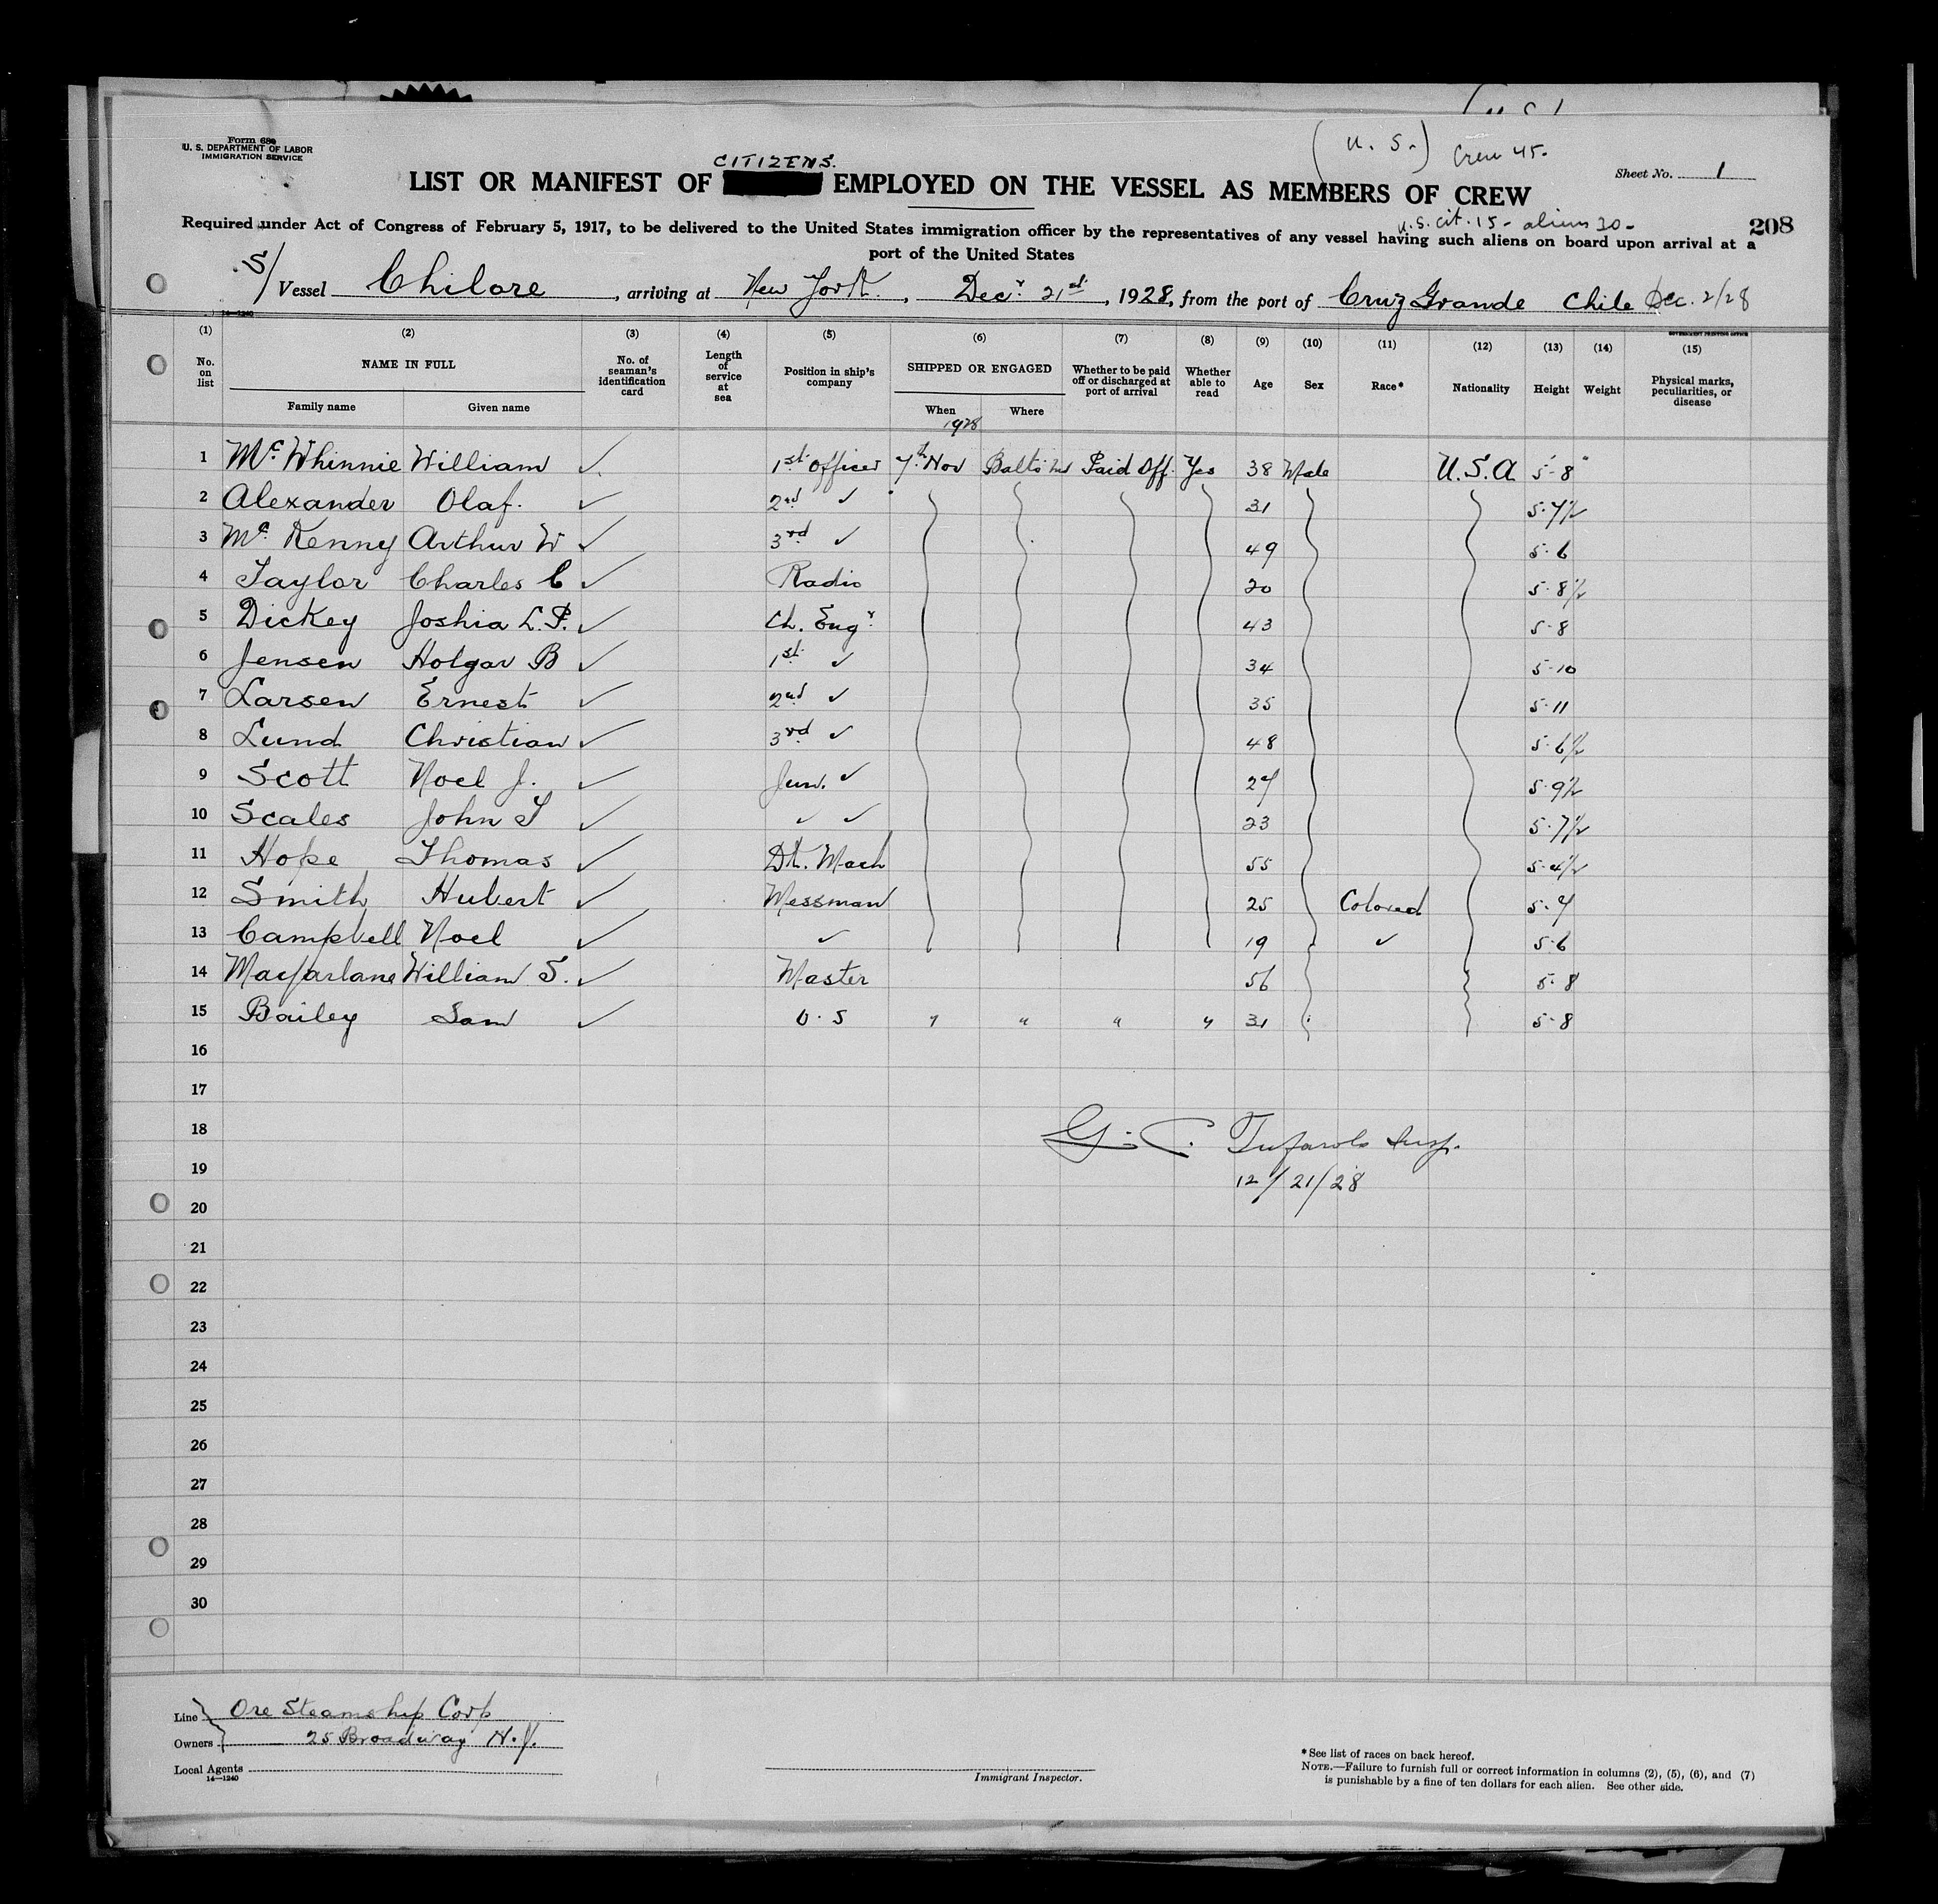 Form 680
U. S. DEPARTMENT OF LABOR
IMMIGRATION SERVICE
(U. S.) Crew 45.
Sheet No. 1
CITIZENS.
LIST OR MANIFEST OF EMPLOYED ON THE VESSEL AS MEMBERS OF CREW
U.S. cit. 15 - aliens 30 -
208
Required under Act of Congress of February 5, 1917, to be delivered to the United States immigration officer by the representatives of any vessel having such aliens on board upon arrival at a
port of the United States
S/ Vessel Chilore, arriving at New York., Decr. 21st., 1928, from the port of Cruz Grande Chile Dec. 2/28
14—1240
GOVERNMENT PRINTING OFFICE
(1) (2) (3) (4) (5) (6) (7) (8) (9) (10) (11) (12) (13) (14) (15)
No. on list
NAME IN FULL
Family name Given name
No. of seaman's identification card
Length of service at sea
Position in ship's company
SHIPPED OR ENGAGED
When Where
1928
Whether to be paid off or discharged at port of arrival
Whether able to read
Age
Sex
Race*
Nationality
Height
Weight
Physical marks, peculiarities, or disease
1 Mc Whinnie William ✓. 1st. Officer 7th Nov Balto Md Paid Off. Yes 38 Male U.S.A 5'-8"
2 Alexander Olaf. ✓ 2nd ✓ 31 5-7½
3 Mc. Kenny Arthur W ✓ 3rd ✓ 49 5-6
4 Taylor Charles C ✓ Radio 20 5-8½
5 Dickey Joshia L.P. ✓ Ch. Engr. 43 5-8
6 Jensen Holgar B ✓ 1st. ✓ 34 5-10
7 Larsen Ernest ✓ 2nd ✓ 35 5-11
8 Lund Christian ✓ 3rd ✓ 48 5-6½
9 Scott Noel J. ✓ Jun. ✓ 27 5-9½
10 Scales John T ✓ ✓ ✓ 23 5-7½
11 Hope Thomas ✓ Dk. Mach 55 5-4½
12 Smith Hubert ✓ Messman 25 Colored 5-7
13 Campbell Noel ✓ ✓ 19 ✓ 5-6
14 Macfarlane William S. ✓ Master 56 5-8
15 Bailey Sam ✓ O.S " " " " 31 5-8
16
17
18
G. C. Insp.
19
12/21/28
20
21
22
23
24
25
26
27
28
29
30
Line Ore Steamship Corp
Owners 25 Broadway N.Y.
Local Agents
14—1240
Immigrant Inspector.
*See list of races on back hereof.
NOTE.—Failure to furnish full or correct information in columns (2), (5), (6), and (7)
is punishable by a fine of ten dollars for each alien. See other side.